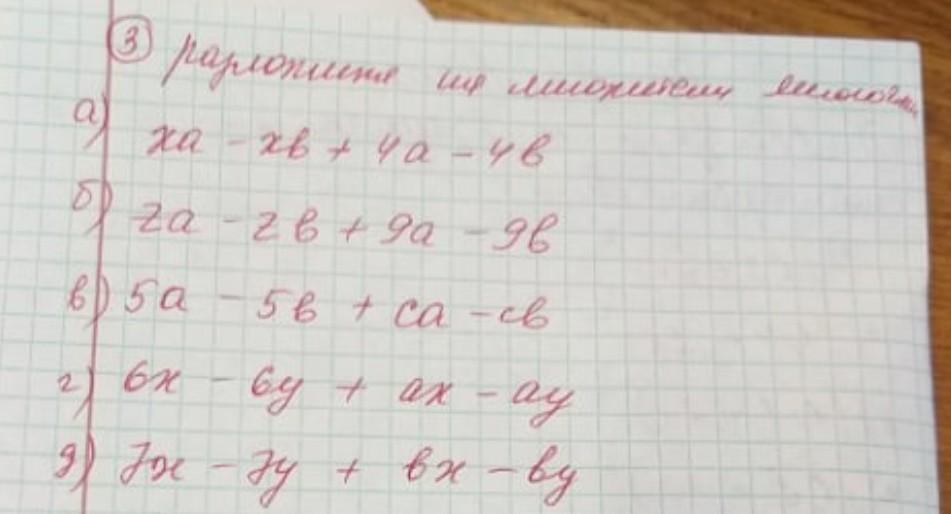 ③ разложите на множители
а)
xa - xb + 4a - 4b
б) za - zb + 9a - 9b
в) 5a - 5b + ca - cb
г) 6x - 6y + ax - ay
д) 7x - 7y + bx - by